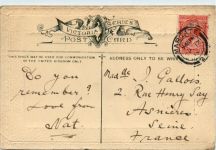 VICTORIA SERIES
POST CARD
THIS SPACE MAY BE USED FOR COMMUNICATION
IN THE UNITED KINGDOM ONLY
ADDRESS ONLY TO BE
To you
remember?
Love from
Nat.
J. Gallois
2 Rue Henry Say
Asnières
Seine
France